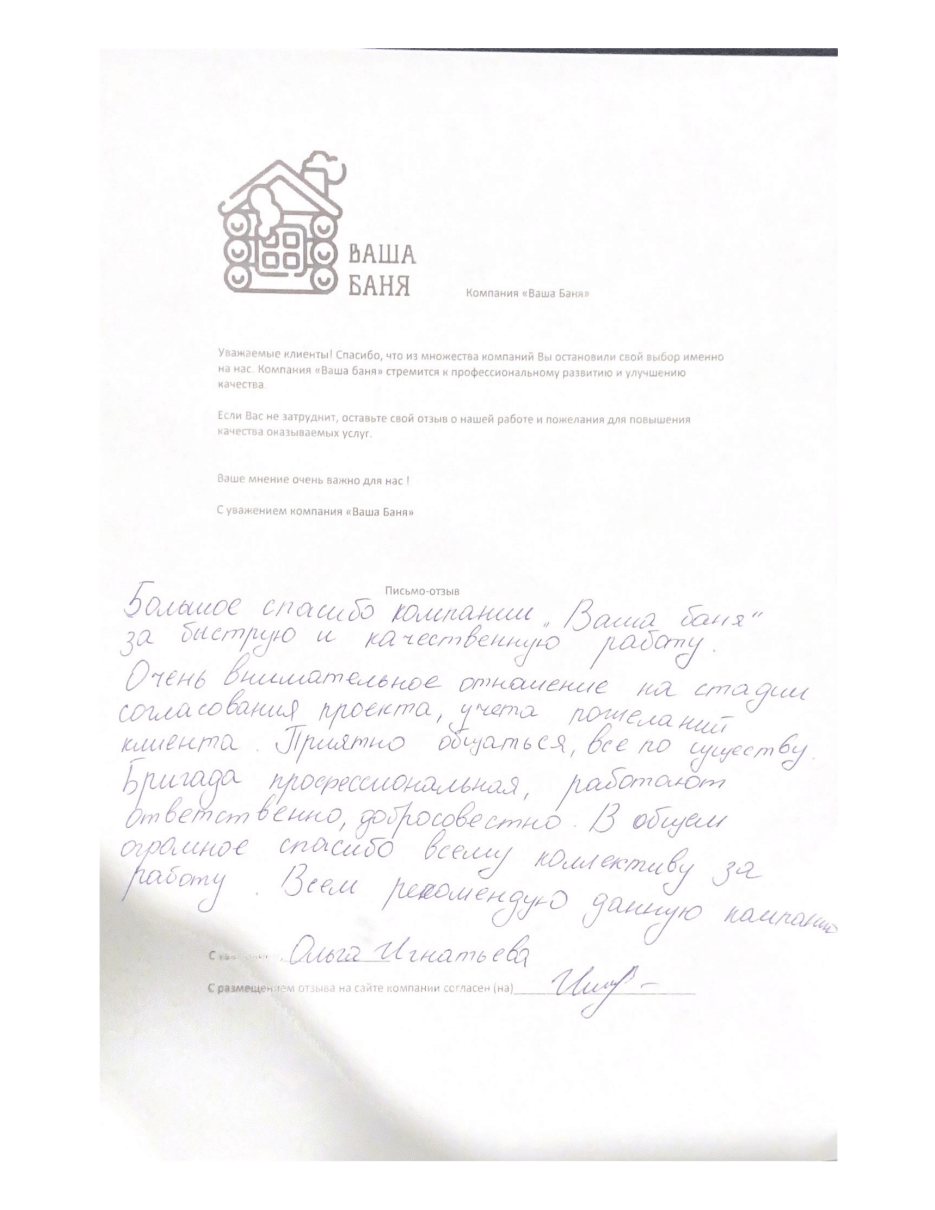 ВАША
БАНЯ
Компания «Ваша Баня»
Уважаемые клиенты! Спасибо, что из множества компаний Вы остановили свой выбор именно
на нас. Компания «Ваша баня» стремится к профессиональному развитию и улучшению
качества.
Если Вас не затруднит, оставьте свой отзыв о нашей работе и пожелания для повышения
качества оказываемых услуг.
Ваше мнение очень важно для нас !
С уважением компания «Ваша Баня»
Письмо-отзыв
Большое спасибо компании „Ваша баня“
за быструю и качественную работу.
Очень внимательное отношение на стадии
согласования проекта, учета пожеланий
клиента. Приятно общаться, все по существу.
Бригада профессиональная, работают
ответственно, добросовестно. В общем
огромное спасибо всему коллективу за
работу. Всем рекомендую данную кампанию
С Ольга Игнатьева
С размещением отзыва на сайте компании согласен (на)